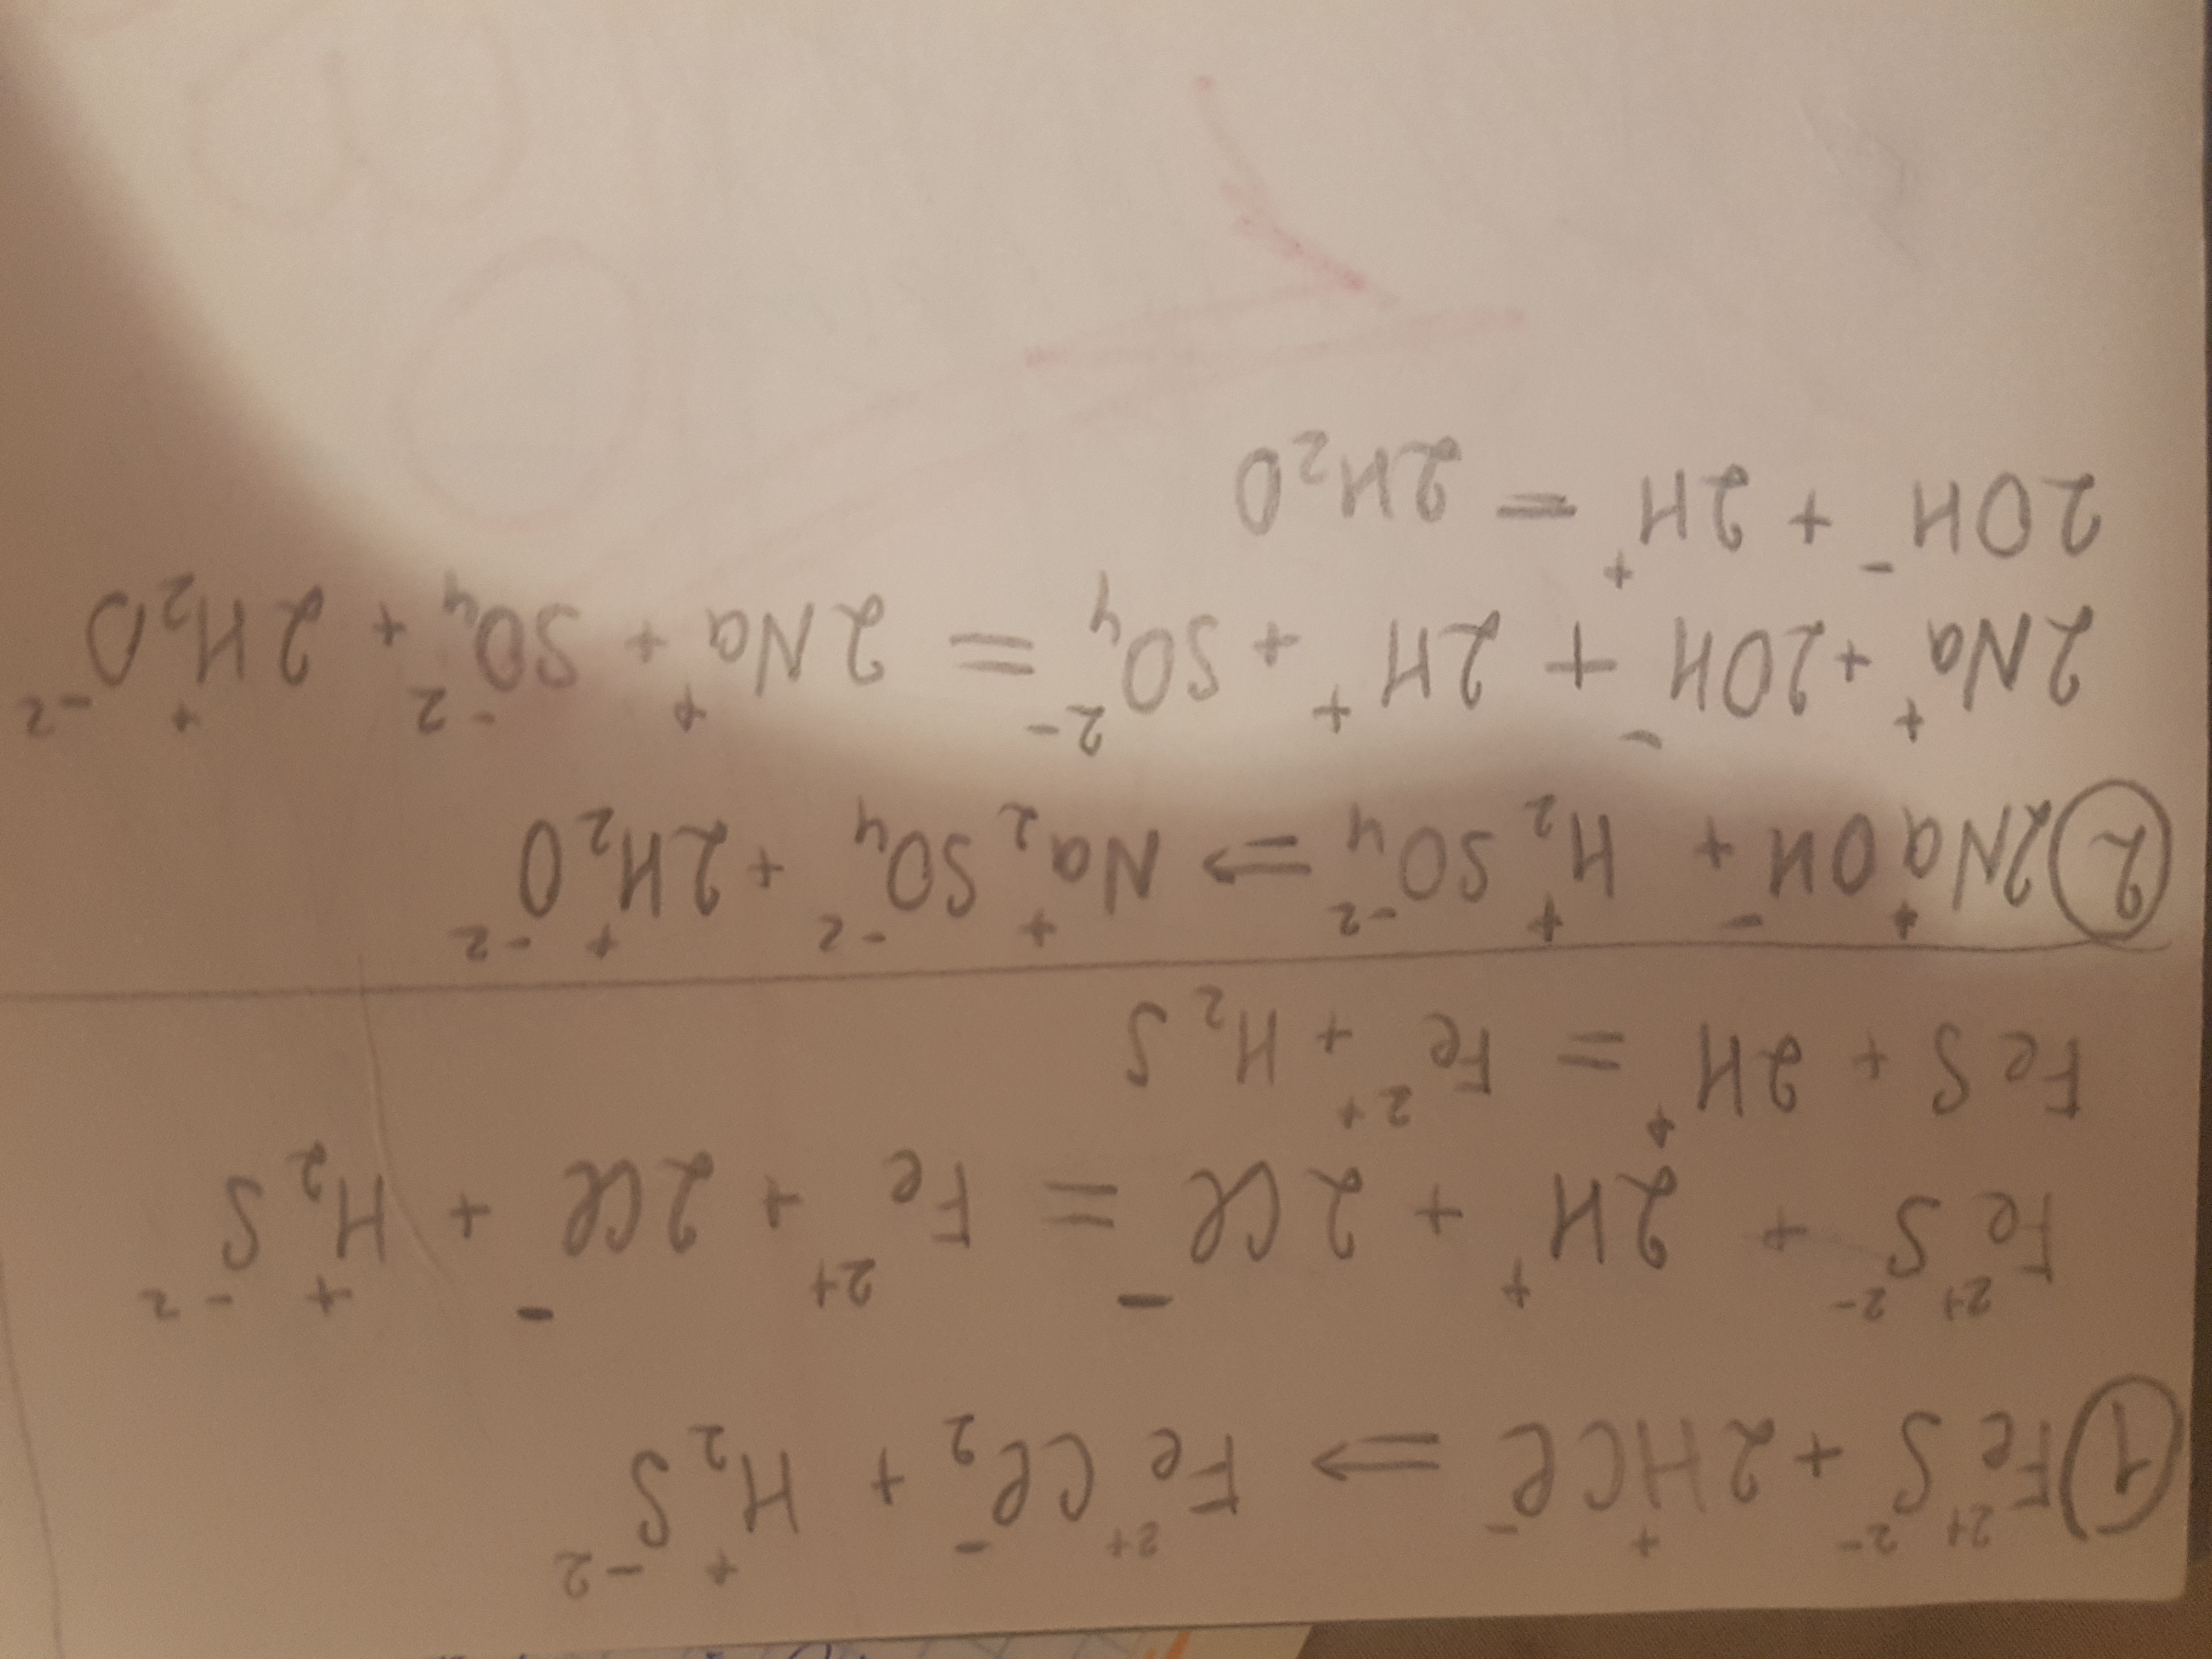 ① Fe²⁺S²⁻ + 2H⁺Cl⁻ ⇒ Fe²⁺Cl₂⁻ + H₂⁺S⁻²
Fe²⁺S²⁻ + 2H⁺ + 2Cl⁻ = Fe²⁺ + 2Cl⁻ + H₂⁺S⁻²
FeS + 2H⁺ = Fe²⁺ + H₂S
② 2Na⁺OH⁻ + H₂⁺SO₄⁻² ⇒ Na₂⁺SO₄⁻² + 2H₂⁺O⁻²
2Na⁺ + 2OH⁻ + 2H⁺ + SO₄²⁻ = 2Na⁺ + SO₄⁻² + 2H₂⁺O⁻²
2OH⁻ + 2H⁺ = 2H₂O